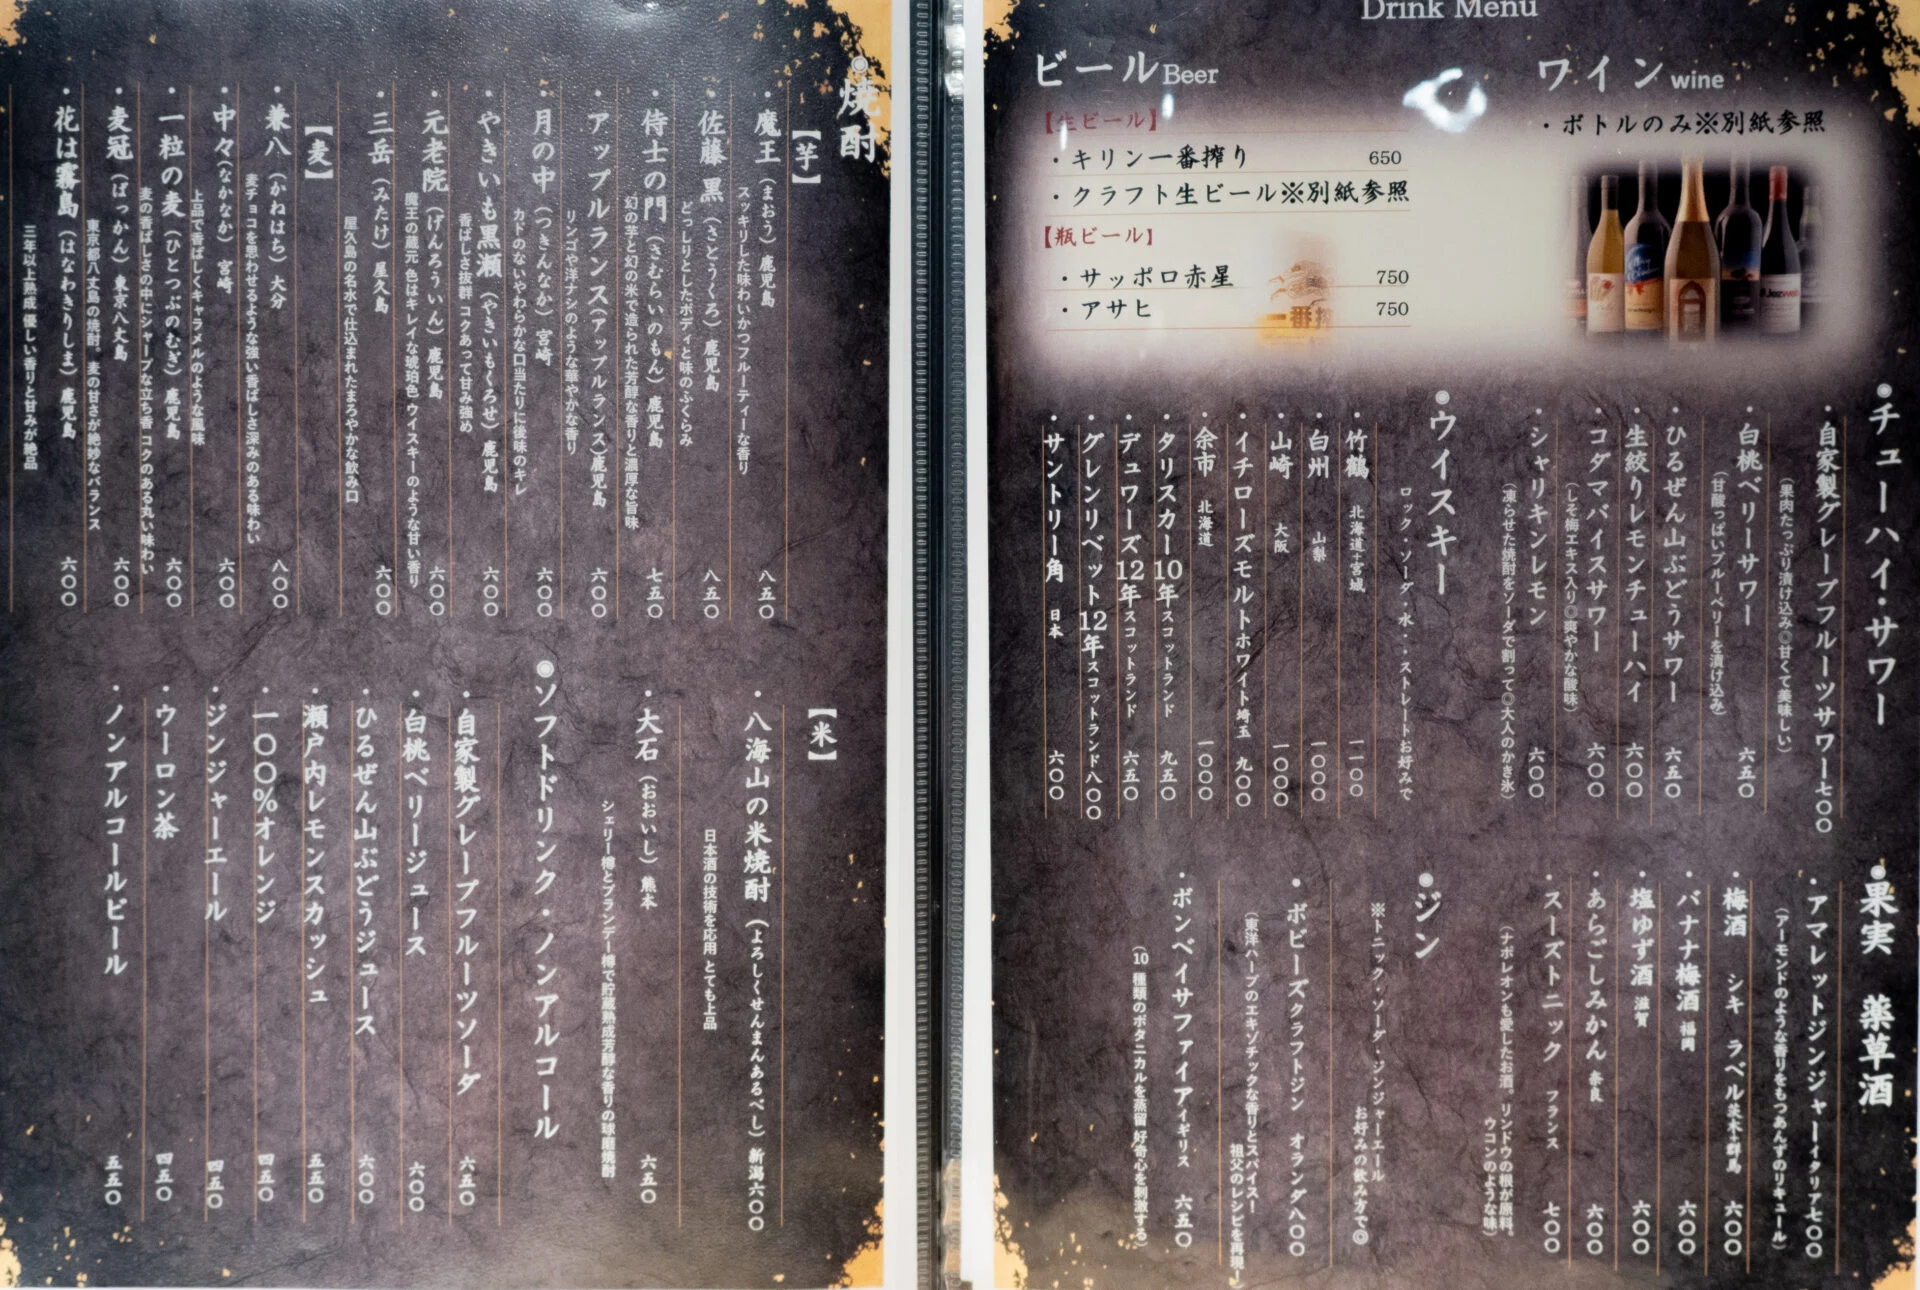 Drink Menu
ビール Beer
【生ビール】
・キリン一番搾り 650
・クラフト生ビール※別紙参照
【瓶ビール】
・サッポロ赤星 750
・アサヒ 750
一番搾
ワイン wine
・ボトルのみ※別紙参照
◉チューハイ・サワー
・自家製グレープフルーツサワー 七〇〇
(果肉たっぷり漬け込み◎甘くて美味しい)
・白桃ベリーサワー 六五〇
(甘酸っぱいブルーベリーを漬け込み)
・ひるぜん山ぶどうサワー 六五〇
・生絞りレモンチューハイ 六〇〇
・コダマバイスサワー 六〇〇
(しそ梅エキス入り◎爽やかな酸味)
・シャリキンレモン 六〇〇
(凍らせた焼酎をソーダで割って◎大人のかき氷)
◉ウイスキー
ロック・ソーダ・水・・ストレートお好みで
・竹鶴 北海道+宮城 一一〇〇
・白州 山梨 一〇〇〇
・山崎 大阪 一〇〇〇
・イチローズモルトホワイト 埼玉 九〇〇
・余市 北海道 一〇〇〇
・タリスカー10年 スコットランド 九五〇
・デュワーズ12年 スコットランド 六五〇
・グレンリベット12年 スコットランド 八〇〇
・サントリー角 日本 六〇〇
◉果実 薬草酒
・アマレットジンジャー イタリア 七〇〇
(アーモンドのような香りをもつあんずのリキュール)
・梅酒 シキ ラベル 茨木+群馬 六〇〇
・バナナ梅酒 福岡 六〇〇
・塩ゆず酒 滋賀 六〇〇
・あらごしみかん 奈良 六〇〇
・スーズトニック フランス 七〇〇
(ナポレオンも愛したお酒。リンドウの根が原料。
ウコンのような味)
◉ジン
※トニック・ソーダ・ジンジャーエール
お好みの飲み方で◎
・ボビーズクラフトジン オランダ 八〇〇
(東洋ハーブのエキゾチックな香りとスパイス!
祖父のレシピを再現!)
・ボンベイサファイア イギリス 六五〇
(10種類のボタニカルを蒸留 好奇心を刺激する)
◉焼酎
【芋】
・魔王(まおう)鹿児島 八五〇
スッキリした味わいかつフルーティーな香り
・佐藤 黒(さとうくろ)鹿児島 八五〇
どっしりとしたボディと味のふくらみ
・侍士の門(さむらいのもん)鹿児島 七五〇
幻の芋と幻の米で造られた芳醇な香りと濃厚な旨味
・アップルランス(アップルランス)鹿児島 六〇〇
リンゴや洋ナシのような華やかな香り
・月の中(つきんなか)宮崎 六〇〇
カドのないやわらかな口当たりに後味のキレ
・やきいも黒瀬(やきいもくろせ)鹿児島 六〇〇
香ばしさ抜群 コクあって甘み強め
・元老院(げんろういん)鹿児島 六〇〇
魔王の蔵元 色はキレイな琥珀色 ウイスキーのような甘い香り
・三岳(みたけ)屋久島 六〇〇
屋久島の名水で仕込まれたまろやかな飲み口
【麦】
・兼八(かねはち)大分 八〇〇
麦チョコを思わせるような強い香ばしさ深みのある味わい
・中々(なかなか)宮崎 六〇〇
上品で香ばしくキャラメルのような風味
・一粒の麦(ひとつぶのむぎ)鹿児島 六〇〇
麦の香ばしさの中にシャープな立ち香 コクのある丸い味わい
・麦冠(ばっかん)東京八丈島 六〇〇
東京都八丈島の焼酎。麦の甘さが絶妙なバランス
・花は霧島(はなわきりしま)鹿児島 六〇〇
三年以上熟成 優しい香りと甘みが絶品
【米】
・八海山の米焼酎(よろしくせんまんあるべし)新潟 六〇〇
日本酒の技術を応用 とても上品
・大石(おおいし)熊本 六五〇
シェリー樽とブランデー樽で貯蔵熟成芳醇な香りの球磨焼酎
◉ソフトドリンク・ノンアルコール
・自家製グレープフルーツソーダ 六五〇
・白桃ベリージュース 六〇〇
・ひるぜん山ぶどうジュース 六〇〇
・瀬戸内レモンスカッシュ 五五〇
・一〇〇%オレンジ 四五〇
・ジンジャーエール 四五〇
・ウーロン茶 四五〇
・ノンアルコールビール 五五〇